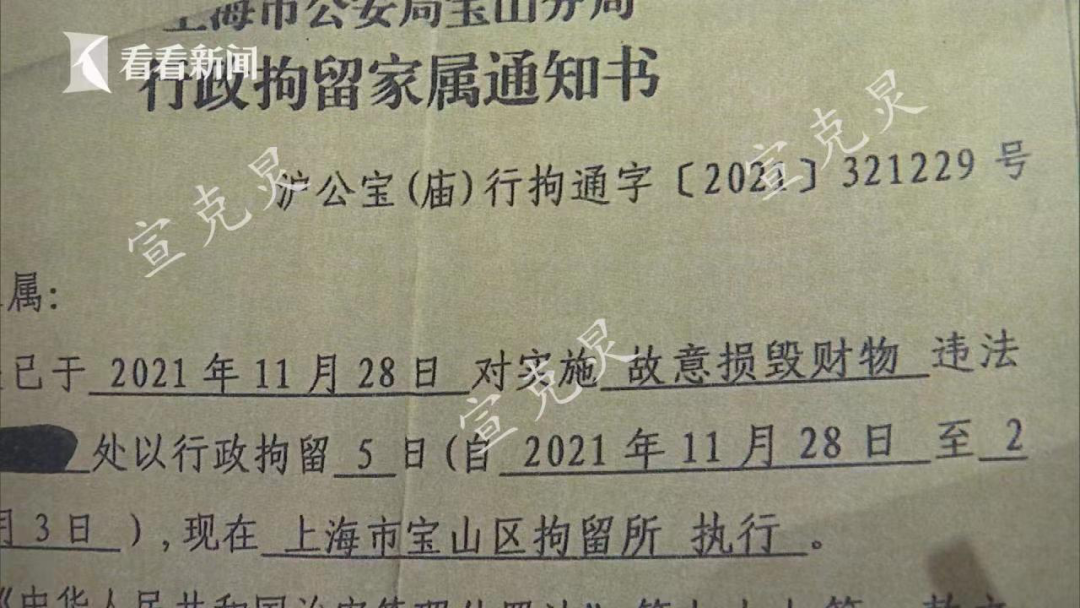 上海市公安局宝山分局
看看新闻
行政拘留家属通知书
沪公宝(庙)行拘通字〔2021〕321229 号
宣克炅
宣克炅
属:
已于 2021 年 11 月 28 日 对实施 故意损毁财物 违法
宣克炅
处以行政拘留 5 日(自 2021 年 11 月 28 日 至 2
月 3 日 ),现在 上海市宝山区拘留所 执行 。
《中华人民共和国治安管理处罚法》第